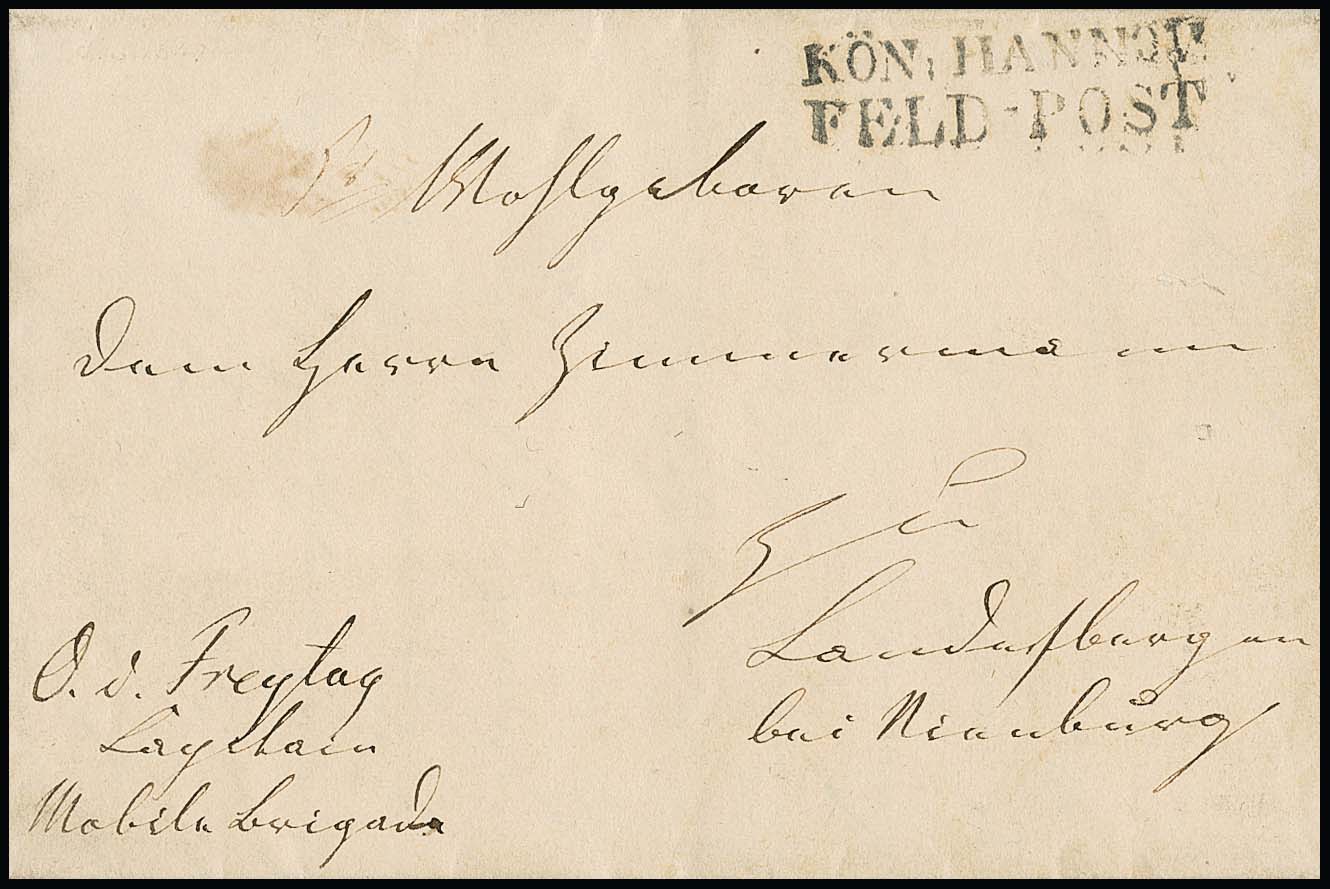 KÖN. HANNOV.
FELD-POST
Sr Wohlgeboren
Dem Herrn Zimmermann
zu
Landesbergen
bei Nienburg
O. v. Freytag
Capitain
Mobile Brigade